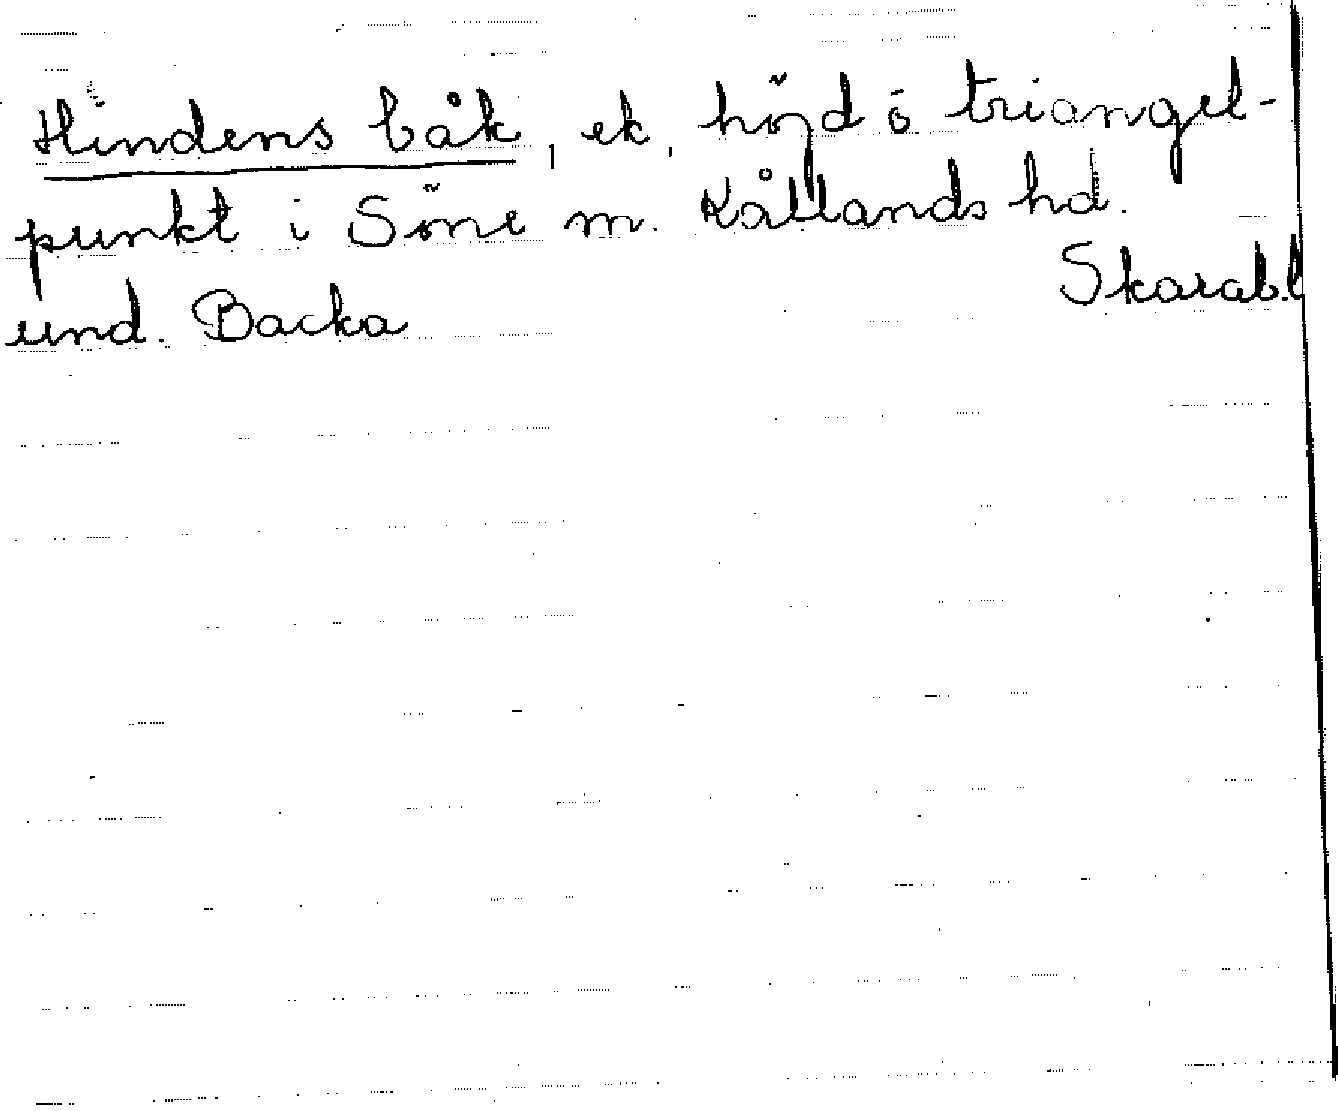 Hindens båk, ek, höjd ö triangel-
punkt i Söne sn. Kållands hd.
Skarab.l
und. Backa